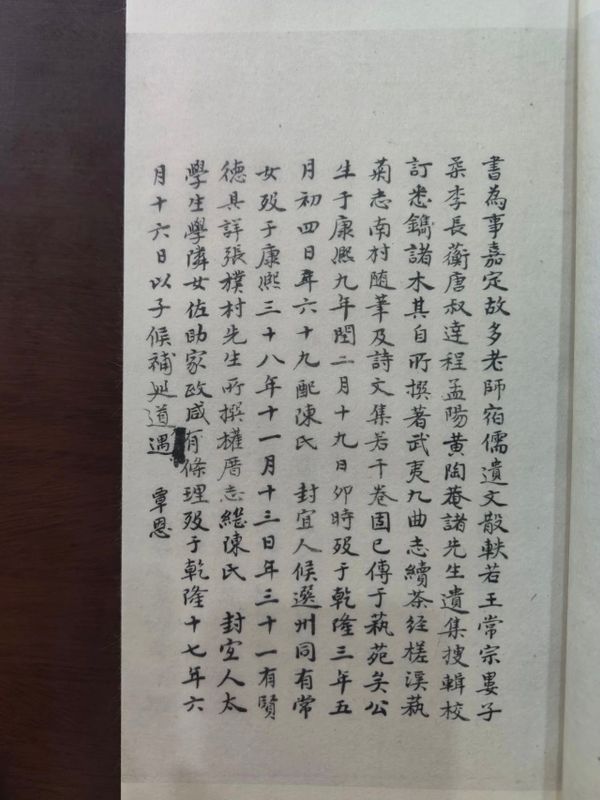 書為事嘉定故多老師宿儒遺文散軼若王常宗婁子
柔李長蘅唐叔達程孟陽黃陶菴諸先生遺集搜輯校
訂悉鐫諸木其自所撰著武夷九曲志續茶經槎溪蓺
菊志南村隨筆及詩文集若干卷固已傳于蓺苑矣公
生于康熈九年閏二月十九日卯時歿于乾隆三年五
月初四日年六十九配陳氏 封宜人候選州同有常
女歿于康熈三十八年十一月十三日年三十一有賢
德具詳張樸村先生所撰權厝志繼陳氏 封宜人太
學生學隣女佐助家政咸有條理歿于乾隆十七年六
月十六日以子候補道遇 覃恩